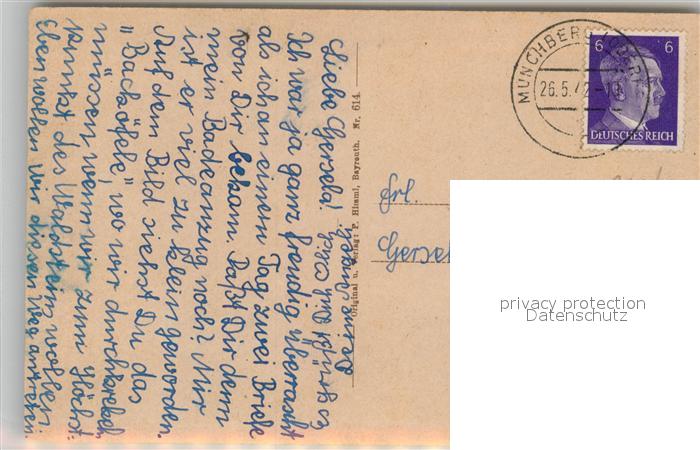 Liebe Gersela!
Ich war ja ganz freudig überrascht
als ich an einem Tag zwei Briefe
von Dir bekam. Paßt Dir denn
mein Badeanzug noch? Mir
ist er viel zu klein geworden.
Auf dem Bild siehst Du das
"Backöfele", wo wir durchkriechen
müssen, wenn wir zum Höchst-
punkt des Waldsteins wollen.
Eben wollen wir diesen Weg antreten.
Es grüßt Dich
Deine
Original u. Verlag: F. Bayreuth. Nr. 614.
MÜNCHBERG
26.5.42
6 6
DEUTSCHES REICH
Frl.
Gersel
privacy protection
Datenschutz